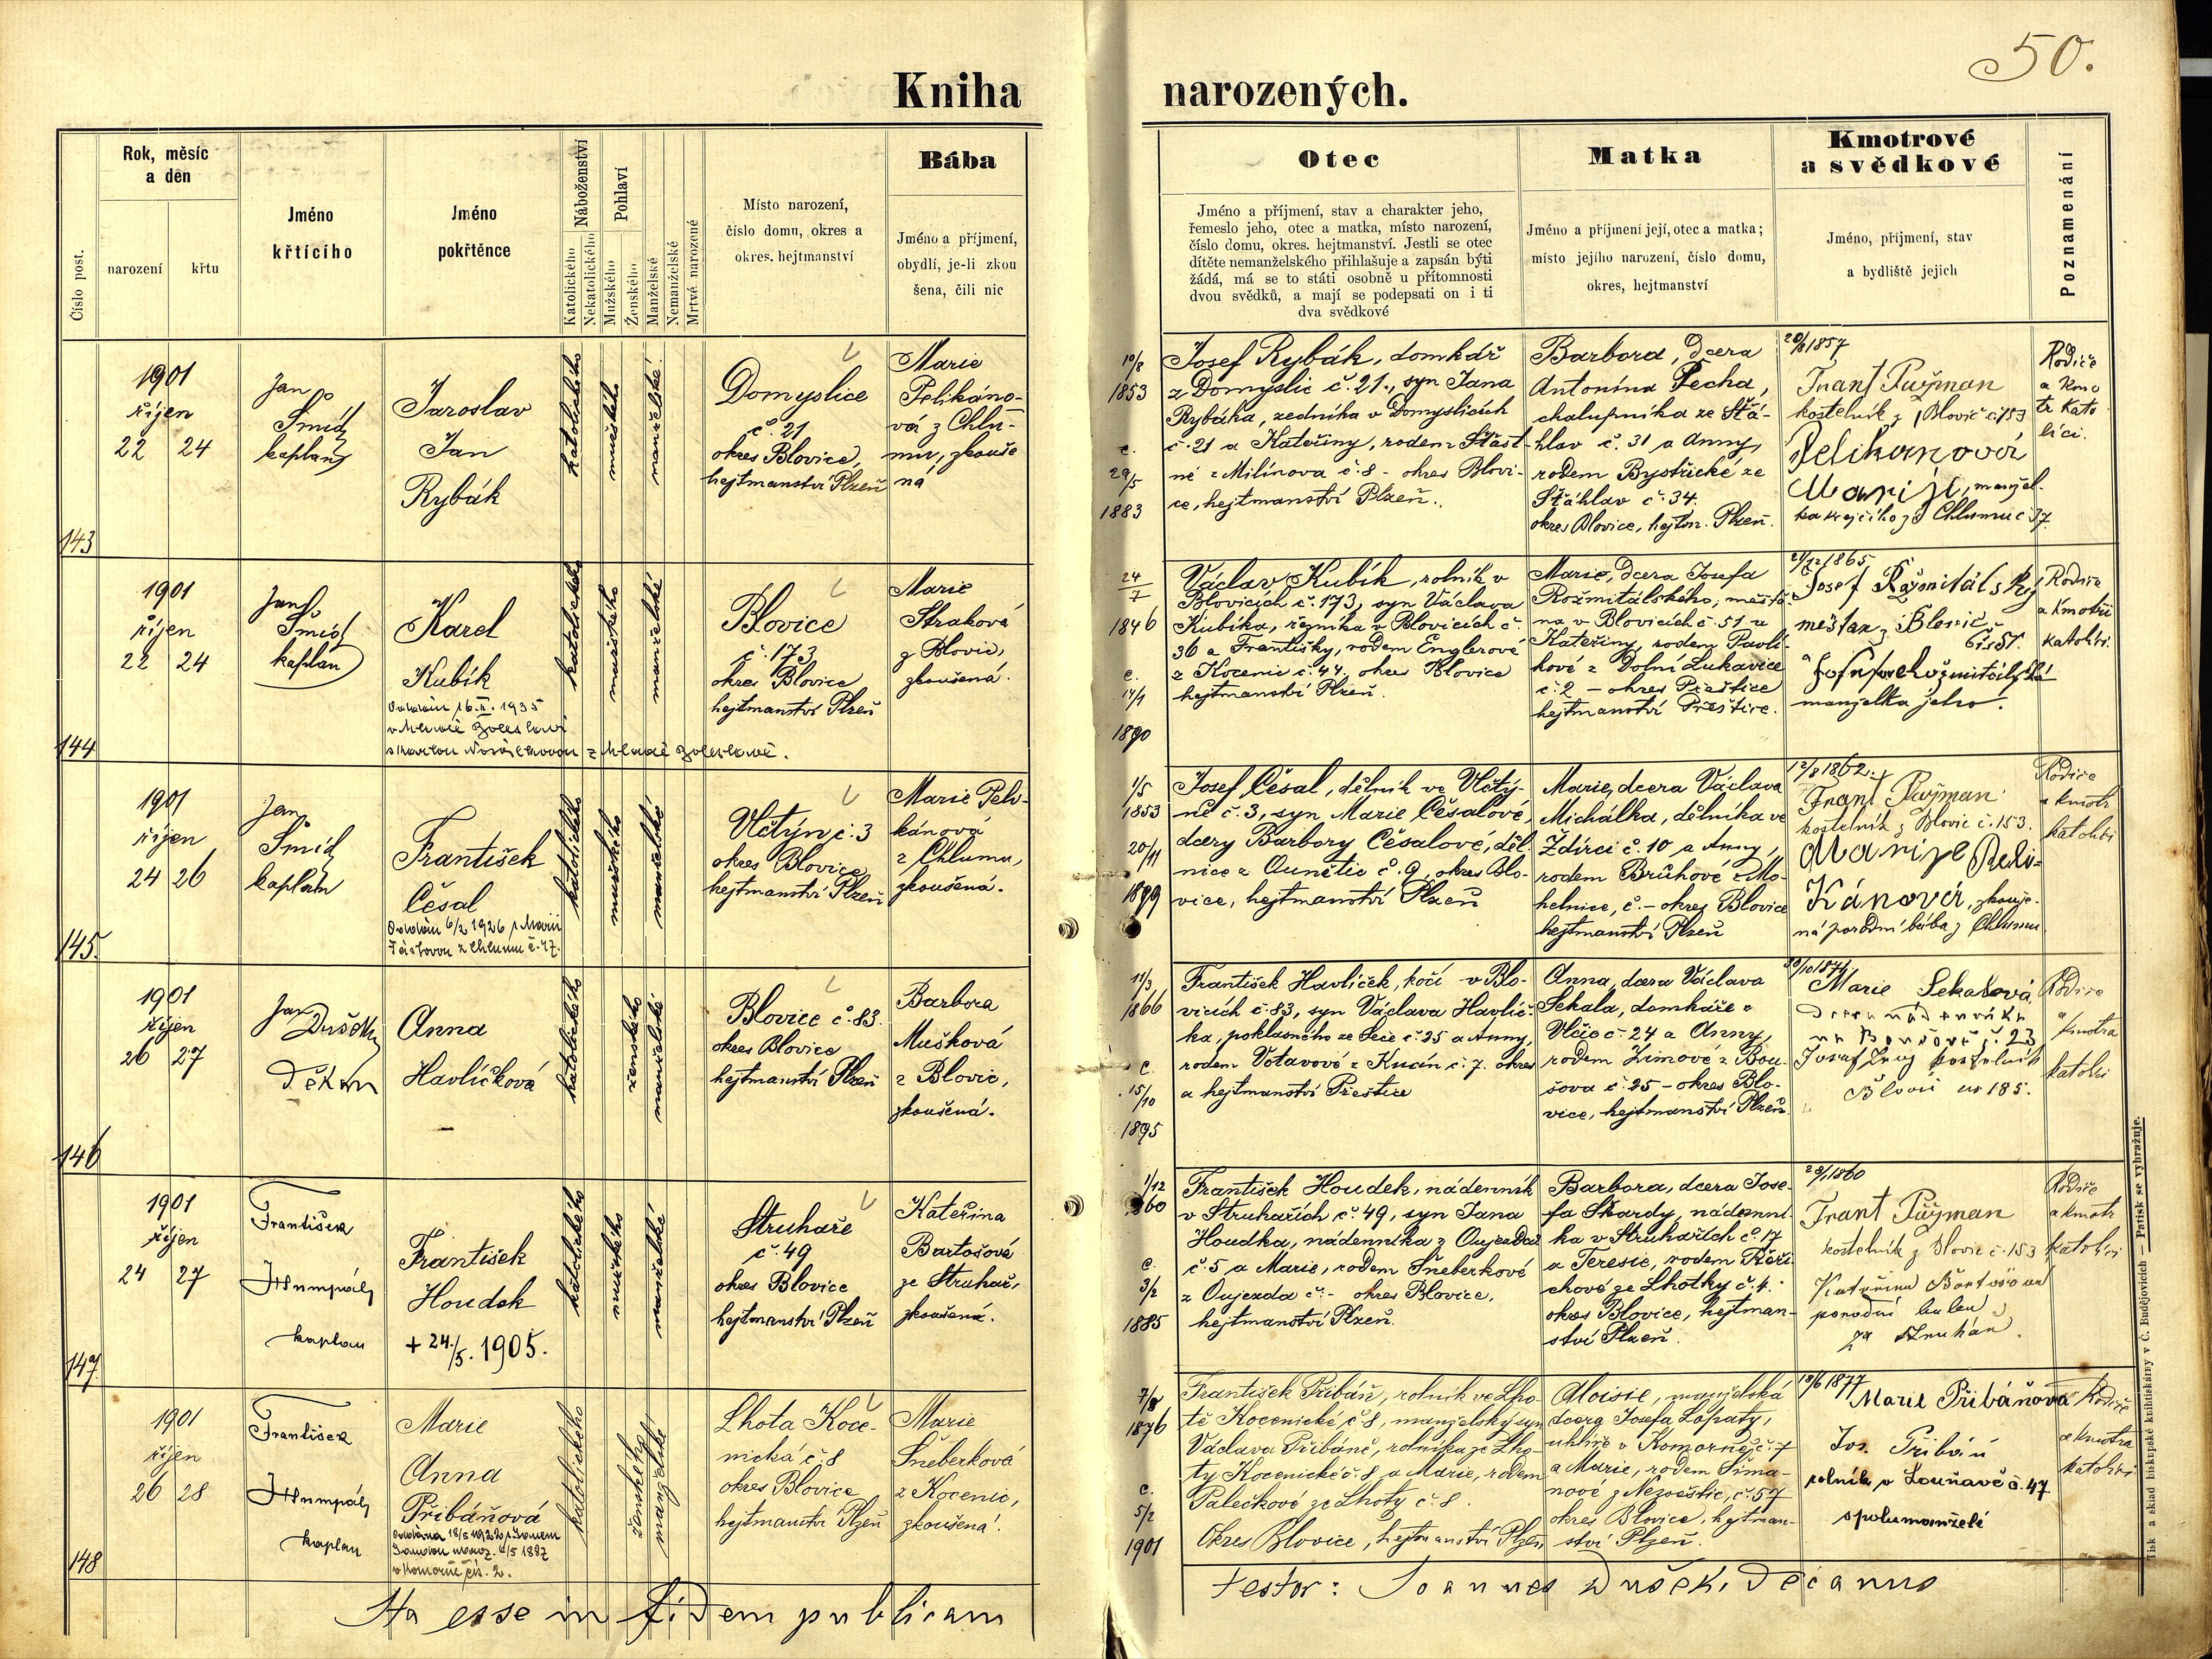 50.
Kniha narozených.
Číslo post.
Rok, měsíc
a dén
narození
křtu
Jméno
křtícího
Jméno
pokřtěnce
Náboženství
Katolického
Nekatolického
Pohlaví
Mužského
Ženského
Manželské
Nemanželské
Mrtvé narozené
Místo narození,
číslo domu, okres a
okres. hejtmanství
Bába
Jméno a příjmení,
obydlí, je-li zkou
šena, čili nic
Otec
Jméno a příjmení, stav a charakter jeho,
řemeslo jeho, otec a matka, místo narození,
číslo domu, okres. hejtmanství. Jestli se otec
dítěte nemanželského přihlašuje a zapsán býti
žádá, má se to státi osobně u přítomnosti
dvou svědků, a mají se podepsati on i ti
dva svědkové
Matka
Jméno a příjmení její, otec a matka;
místo jejího narození, číslo domu,
okres, hejtmanství
Kmotrové
a svědkové
Jméno, příjmení, stav
a bydliště jejich
Poznamenání
143
1901
říjen
22 24
Jan
Šmíd
kaplan
Jaroslav
Jan
Rybák
katolického
mužského
manželské
Domyslice
č. 21
okres Blovice,
hejtmanství Plzeň
Marie
Pelikáno-
vá z Chlu-
mu, zkouše
ná
10/8
1853
c.
29/5
1883
Josef Rybák, domkář
z Domyslic č. 21., syn Jana
Rybáka, zedníka v Domyslicích
č. 21 a Kateřiny, rodem Šťast-
né z Milínova č. 8 - okres Blovi-
ce, hejtmanství Plzeň.
Barbora, dcera
Antonína Pecha,
chalupníka ze Šťá-
hlav č. 31 a Anny,
rodem Bystřické ze
Šťáhlav č. 34.
okres Blovice, hejtm. Plzeň.
20/8 1857
Frant Pužman
kostelník z Blovic č. 153
Pelikanová
Marije, manžel-
ka krejčího z Chlumu č. 37.
Rodiče
a kmo
tr kato
líci.
144
1901
říjen
22 24
Jan
Šmíd
kaplan
Karel
Kubík
Oddán 16.II. 1935
v Mladé Boleslavi
s Marlou Nováčkovou z Mladé Boleslavě.
katolického
mužského
manželské
Blovice
č. 173
okres Blovice
hejtmanství Plzeň
Marie
Straková
z Blovic,
zkoušená.
24/7
1846
c.
14/1
1890
Václav Kubík, rolník v
Blovicích č. 173, syn Václava
Kubíka, řezníka v Blovicích č.
36 a Františky, rodem Englerové
z Kocenic č. 44, okres Blovice
hejtmanství Plzeň.
Marie, dcera Josefa
Rožmitálského, měšťa-
na v Blovicích č. 51 a
Kateřiny, rodem Pavlí-
kové z Dolní Lukavice
č. 2 - okres Přeštice
hejtmanství Přeštice.
21/12 1865
Josef Rožmitálský
měšťan z Blovic
čís 51.
manželka jeho.
Rodiče
a kmotři
katolíci.
145.
1901
říjen
24 26
Jan
Šmíd
kaplan
František
Česal
Oddán 6/2 1926 s Marií
z Chlumu č. 47.
katolického
mužského
manželské
Vlčtýn č. 3
okres Blovice
hejtmanství Plzeň
Marie Peli-
kánová
z Chlumu,
zkoušená.
1/5
1853
20/11
1899
Josef Česal, dělník ve Vlčtý-
ně č. 3, syn Marie Česalové,
dcery Barbory Česalové, děl-
nice z Ounětic č. 9, okres Blo-
vice, hejtmanství Plzeň
Marie, dcera Václava
Michálka, dělníka ve
Ždírci č. 10 a Anny,
rodem Brůhové z Mo-
helnice, č. - okres Blovice
hejtmanství Plzeň
12/8 1862
Frant Pužman
kostelník z Blovic č. 153.
Marije Peli-
Kánová, zkouše-
ná porodní bába z Chlumu
Rodiče
a kmotr
katolíci
146
1901
říjen
26 27
Jan
Dušek
děkan
Anna
Havlíčková
katolického
ženského
manželské
Blovice č. 83.
okres Blovice
hejtmanství Plzeň
Barbora
Mušková
z Blovic,
zkoušená.
11/3
1866
c.
15/10
1895
František Havlíček, kočí v Blo-
vicích č. 83, syn Václava Havlíč-
ka, poklasného ze Seče č. 25 a Anny,
rodem Votavové z Kucín č. 7. okres
a hejtmanství Přeštice
Anna, dcera Václava
Sekala, domkáře z
Vlčic č. 24 a Anny,
rodem Zimové z Bou-
šova č. 25 - okres Blo-
vice, hejtmanství Plzeň.
30/10 1874
Marie Sekalová
dcera nádeníka
č. 23
kostelník
Blovic no 185.
Rodiče
a
kmotra
katolíci
147
1901
říjen
24 27
František
Humpál
kaplan
František
Houdek
+ 24./5. 1905.
katolického
mužského
manželské
Struhaře
č. 49
okres Blovice
hejtmanství Plzeň
Kateřina
Bartošová
ze Struhař,
zkoušená.
1/12
1860
c.
3/2
1885
František Houdek, nádenník
v Struhařích č. 49, syn Jana
Houdka, nádenníka z Oujezda
č. 5 a Marie, rodem Šneberkové
z Oujezda č. - okres Blovice,
hejtmanství Plzeň.
Barbora, dcera Jose-
fa Škardy, nádenní-
ka v Struhařích č. 17
a Teresie, rodem Řeři-
chové ze Lhotky č. 4.
okres Blovice, hejtman-
ství Plzeň.
1860
Frant Pužman
kostelník z Blovic č. 153
Kateřina Bartošová
porodní
ze Struhař.
Rodiče
a kmotr
katolíci
148
1901
říjen
26 28
František
Humpál
kaplan
Marie
Anna
Přibáňová
Oddána 18/5 1922 s Janem
4/5 1887
v Komorně čís. 2.
katolického
ženského
manželské
Lhota Koce-
nická č. 8
okres Blovice
hejtmanství Plzeň
Marie
Šneberková
z Kocenic,
zkoušená.
7/8
1876
c.
5/2
1901
František Přibáň, rolník ve Lho-
tě Kocenické č. 8, manželský syn
Václava Přibáně, rolníka ze Lho-
ty Kocenické č. 8 a Marie, rodem
Palečkové ze Lhoty č. 8.
Okres Blovice, hejtmanství Plzeň
Aloisie, manželská
dcera Josefa Lopaty,
uhlíře v Komorně č. 7
a Marie, rodem Šima-
nové z Nezvěstic, č. 57
okres Blovice, hejtman-
ství Plzeň.
18/6 1877
Marie Přibáňova
Jos. Přibáň
rolník v Louňavě č. 47
spolumanželé
Rodiče
a kmotra
katolíci
Ita esse in fidem publicam
testor: Joannes Dušek, decanus
Tisk a sklad biskupské knihtiskárny v Č. Budějovicích — Patisk se vyhražuje.